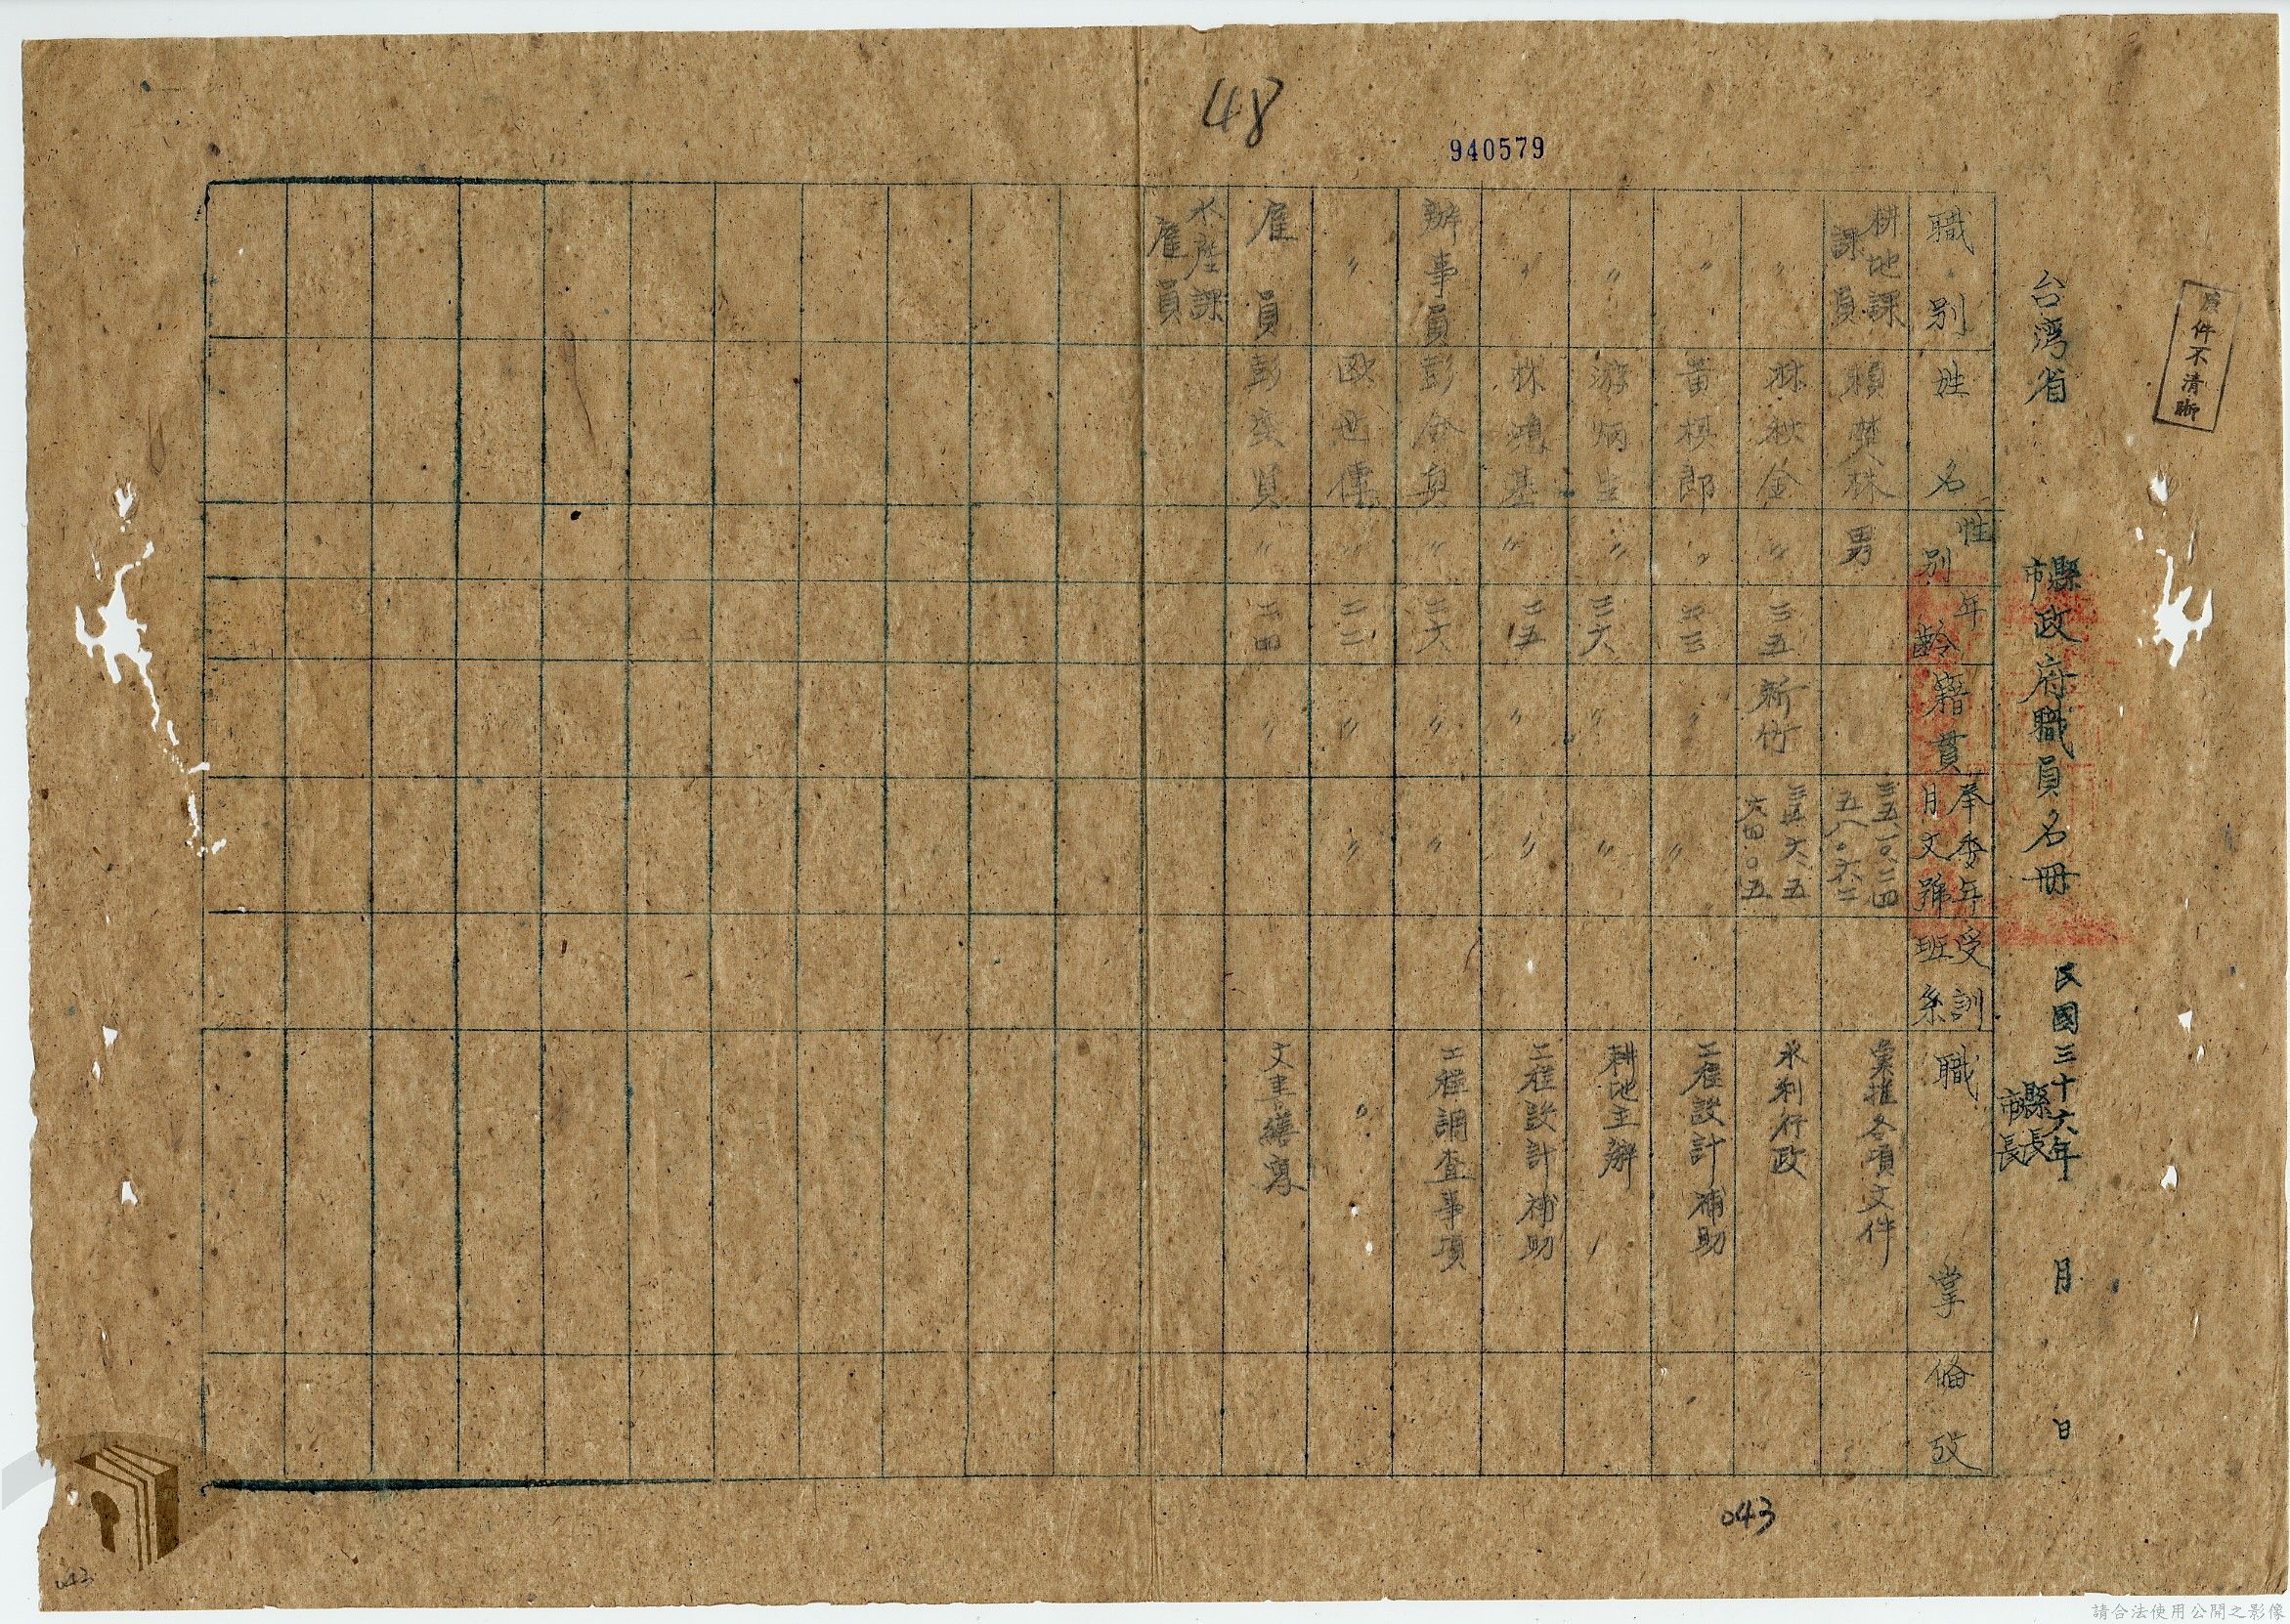 48
940579
原件不清晰
台湾省 縣市政府職員名冊 民國三十六年 月 日
縣長
市長
職別 姓名 性別 年齡 籍貫 奉委年月文號 受訓班系 職掌 偹攷
耕地課課員 男 三五一〇、二四 五八〇六二
各項文件
〃 林秋金 〃 三五 新竹 三五、六、五 六四〇〇五 水利行政
〃 黃棋郎 〃 〃 〃 工程設計補助
〃 游炳生 〃 三六 〃 〃 耕地主辦
〃 林鴻基 〃 二五 〃 〃 工程設計補助
辦事員 彭金真 〃 二六 〃 〃 工程調查事項
〃 歐世偉 〃 二二 〃 〃 〃
雇員 彭 賢 〃 二四 〃 文書繕寫
水産課雇員
043
043
請合法使用公開之影像